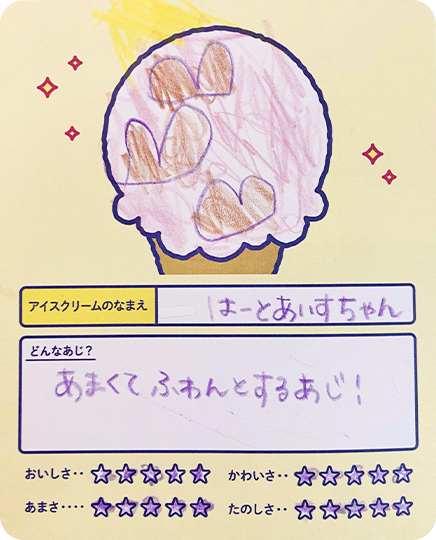 アイスクリームのなまえ
はーとあいすちゃん
どんなあじ？
あまくてふわんとするあじ！
おいしさ‥ ★★★★★
かわいさ‥ ★★★★★
あまさ‥‥ ★★★★★
たのしさ‥ ★★★★★